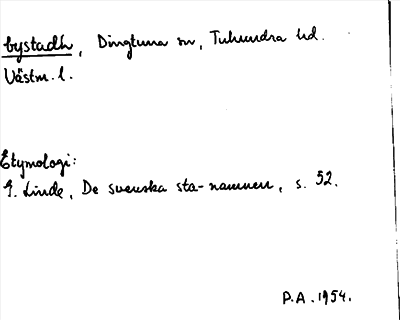 bystadh, Dingtuna sn, Tuhundra hd.
Västm. l.
Etymologi:
G. Linde, De svenska sta-namnen, s. 52.
P.A. 1954.